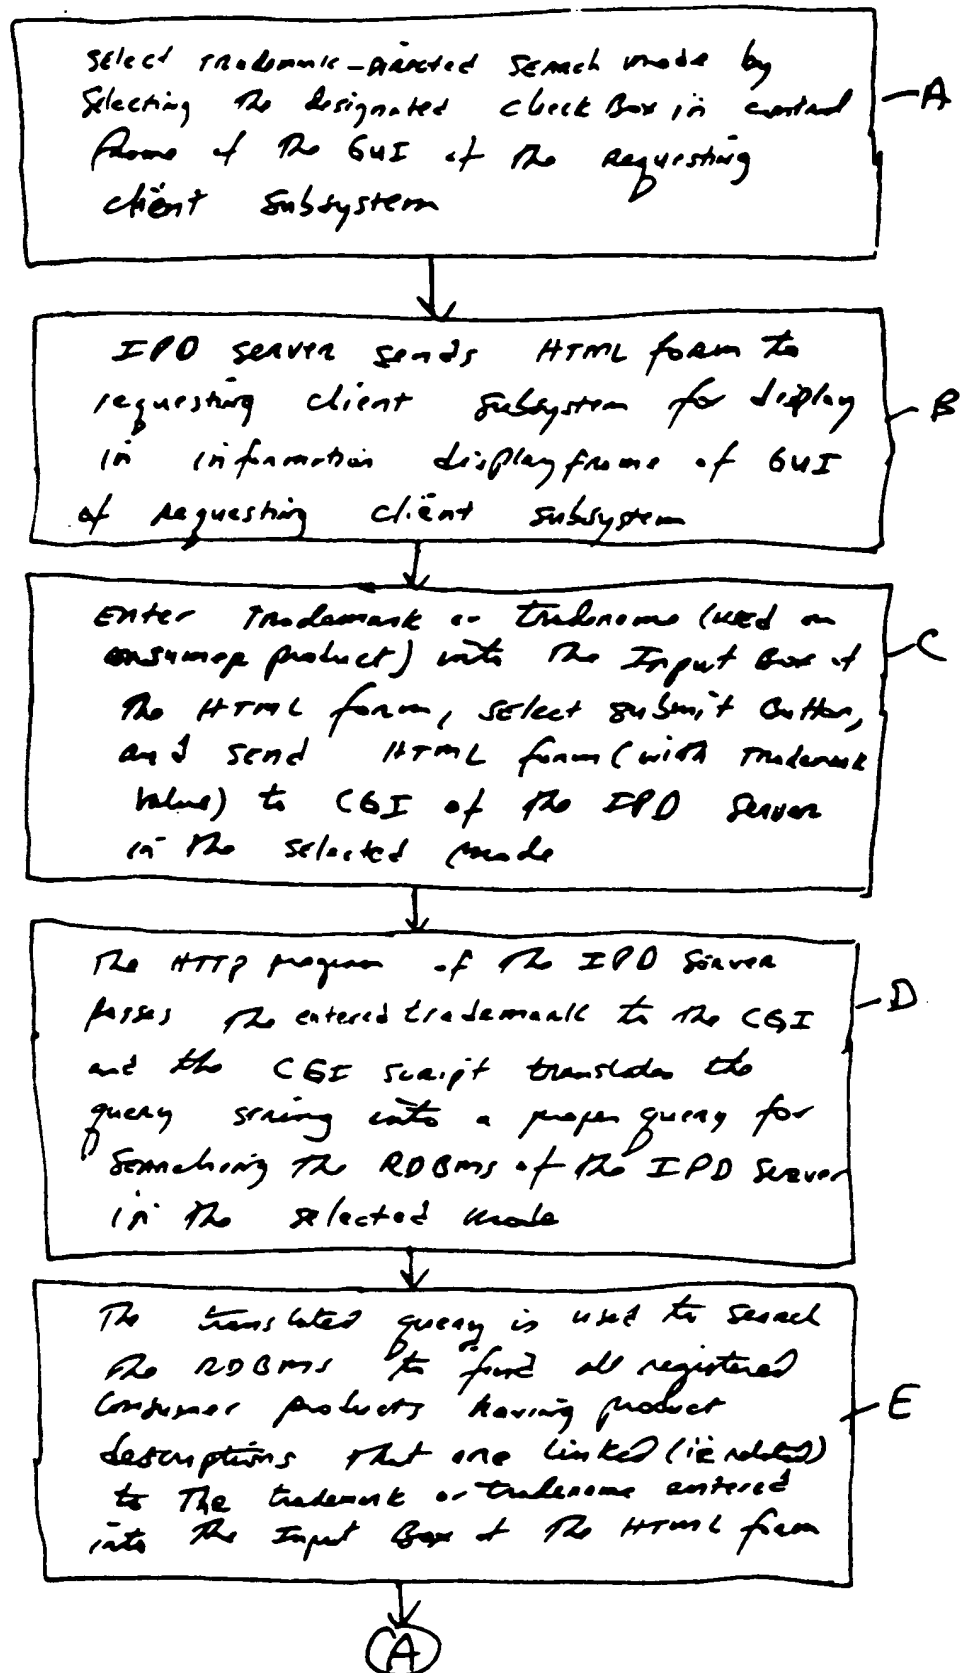 Select Trademark-Directed Search mode by
Selecting the designated check Box in control
frame of the GUI of the Requesting
client Subsystem
A
IPD server sends HTML form to
requesting client subsystem for display
in information display frame of GUI
of Requesting client subsystem
B
Enter Trademark or tradename (used on
consumer product) into the Input Box of
the HTML form, select submit Button,
and send HTML form (with Trademark
Value) to CGI of the IPD Server
in the selected mode
C
The HTTP program of the IPD Server
passes the entered trademark to the CGI
and the CGI script translates the
query string into a proper query for
Searching the RDBMS of the IPD Server
in the selected mode
D
The translated query is used to search
the RDBMS to find all registered
Consumer products having product
descriptions that are linked (ie related)
to The trademark or tradename entered
into the Input Box of the HTML form
E
A